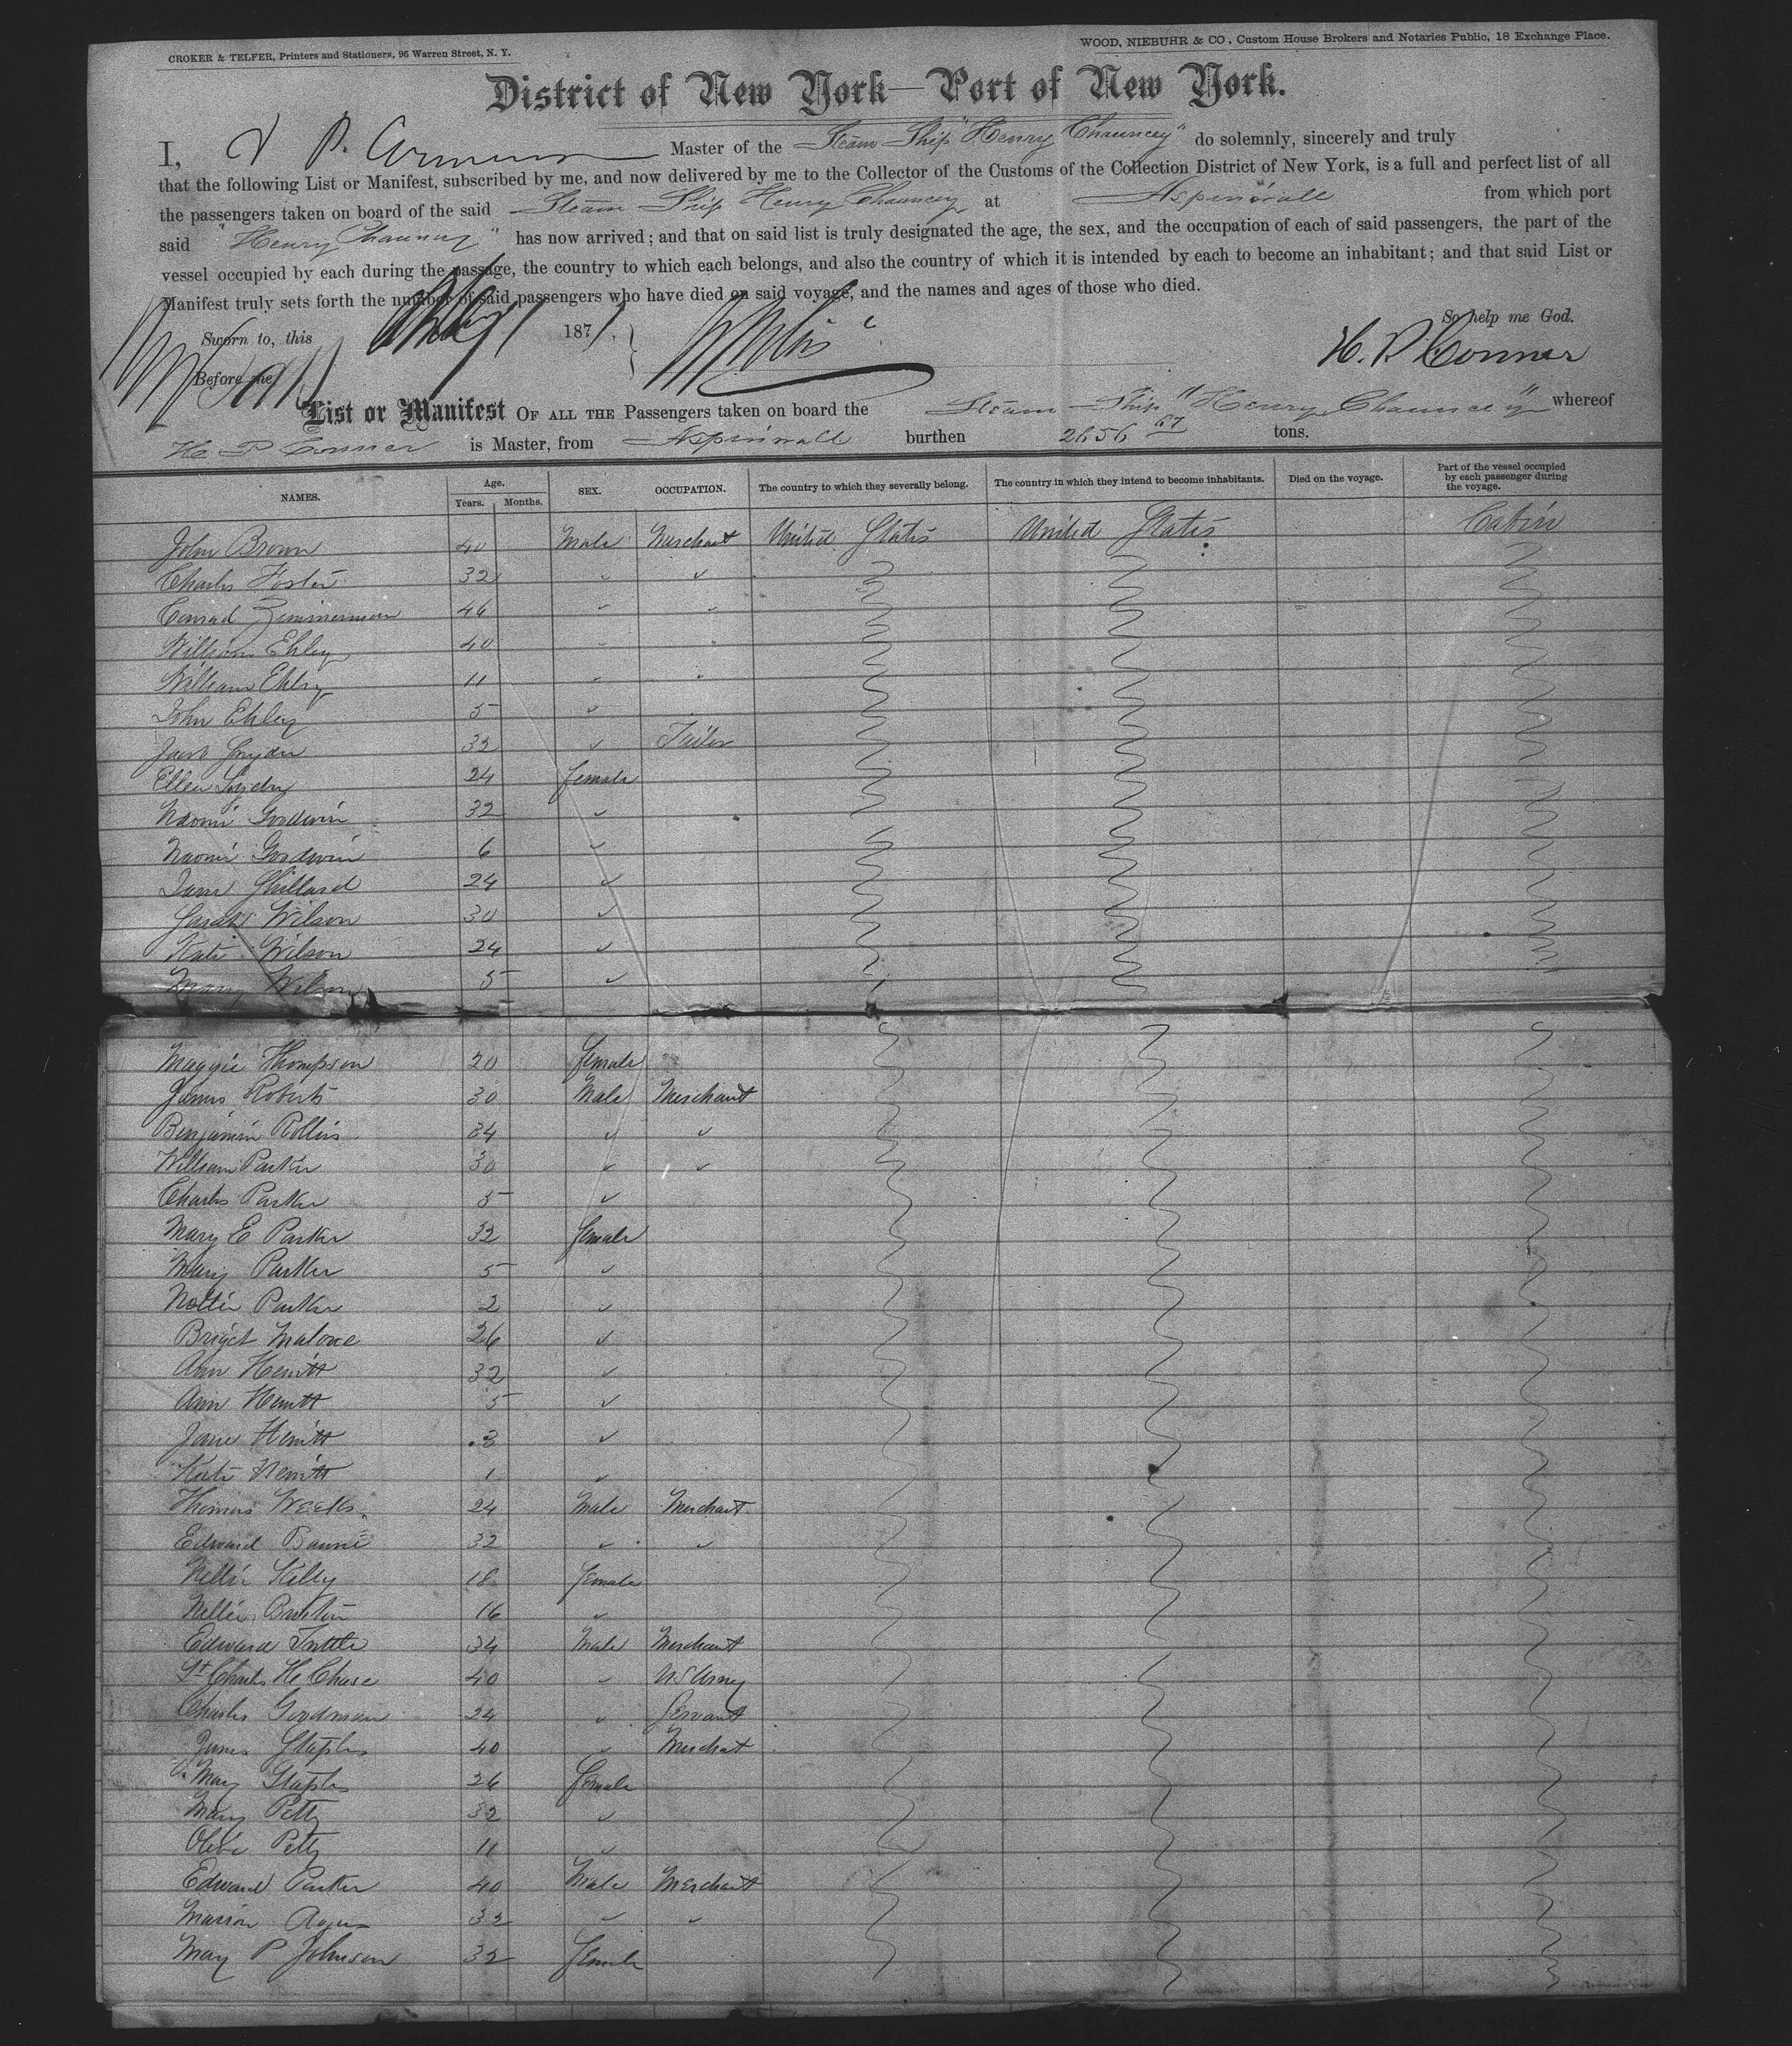 CROKER & TELFER, Printers and Stationers, 96 Warren Street, N. Y.
WOOD, NIEBUHR & CO, Custom House Brokers and Notaries Public, 18 Exchange Place.
District of New York—Port of New York.
I, P. Master of the Steam Ship "Henry Chauncey" do solemnly, sincerely and truly
that the following List or Manifest, subscribed by me, and now delivered by me to the Collector of the Customs of the Collection District of New York, is a full and perfect list of all
the passengers taken on board of the said Steam Ship Henry Chauncey at Aspinwall from which port
said "Henry Chauncey" has now arrived; and that on said list is truly designated the age, the sex, and the occupation of each of said passengers, the part of the
vessel occupied by each during the passage, the country to which each belongs, and also the country of which it is intended by each to become an inhabitant; and that said List or
Manifest truly sets forth the number of said passengers who have died on said voyage, and the names and ages of those who died.
So help me God.
Sworn to, this 1871.
H. P. Connor
Before me,
List or Manifest OF ALL THE Passengers taken on board the Steam Ship "Henry Chauncey" whereof
H P Connor is Master, from Aspinwall burthen 2656 67 tons.
NAMES. Age. Years. Months. SEX. OCCUPATION. The country to which they severally belong. The country in which they intend to become inhabitants. Died on the voyage. Part of the vessel occupied by each passenger during the voyage.
John Brown 40 Male Merchant United States United States Cabin
Charles Foster 32 " "
Conrad Zimmerman 46 " "
William Ehley 40 " "
William Ehley 11 " "
John Ehley 5 "
Jacob Snyder 32 " Tailor
Ellen Snyder 24 female
Naomi Goodwin 32 "
Naomi Goodwin 6 "
Jane Shillard 24 "
Sarah Wilson 30 "
Kate Wilson 24 "
Mary Wilson 5 "
Maggie Thompson 20 female
James Roberts 30 Male Merchant
Benjamin Rollins 34 " "
William Parker 30 " "
Charles Parker 5 "
Mary E Parker 32 female
Mary Parker 5 "
Nettie Parker 2 "
Briget Malone 26 "
Ann Hewitt 32 "
Ann Hewitt 5 "
Jane Hewitt 3 "
Kate Hewitt 1 "
Thomas Weeks 24 Male Merchant
Edward 32 " "
Nellie Kelly 18 female
Nellie 16 "
Edward Tuttle 34 Male Merchant
Lt Charles H Chase 40 " US Army
Charles Goodman 24 " Servant
James Staples 40 " Merchat
Mary Staples 26 female
Mary Petty 32 "
Petty 11 "
Edward Parker 40 Male Merchant
Marion Rogers 32 " "
Mary P Johnson 32 female